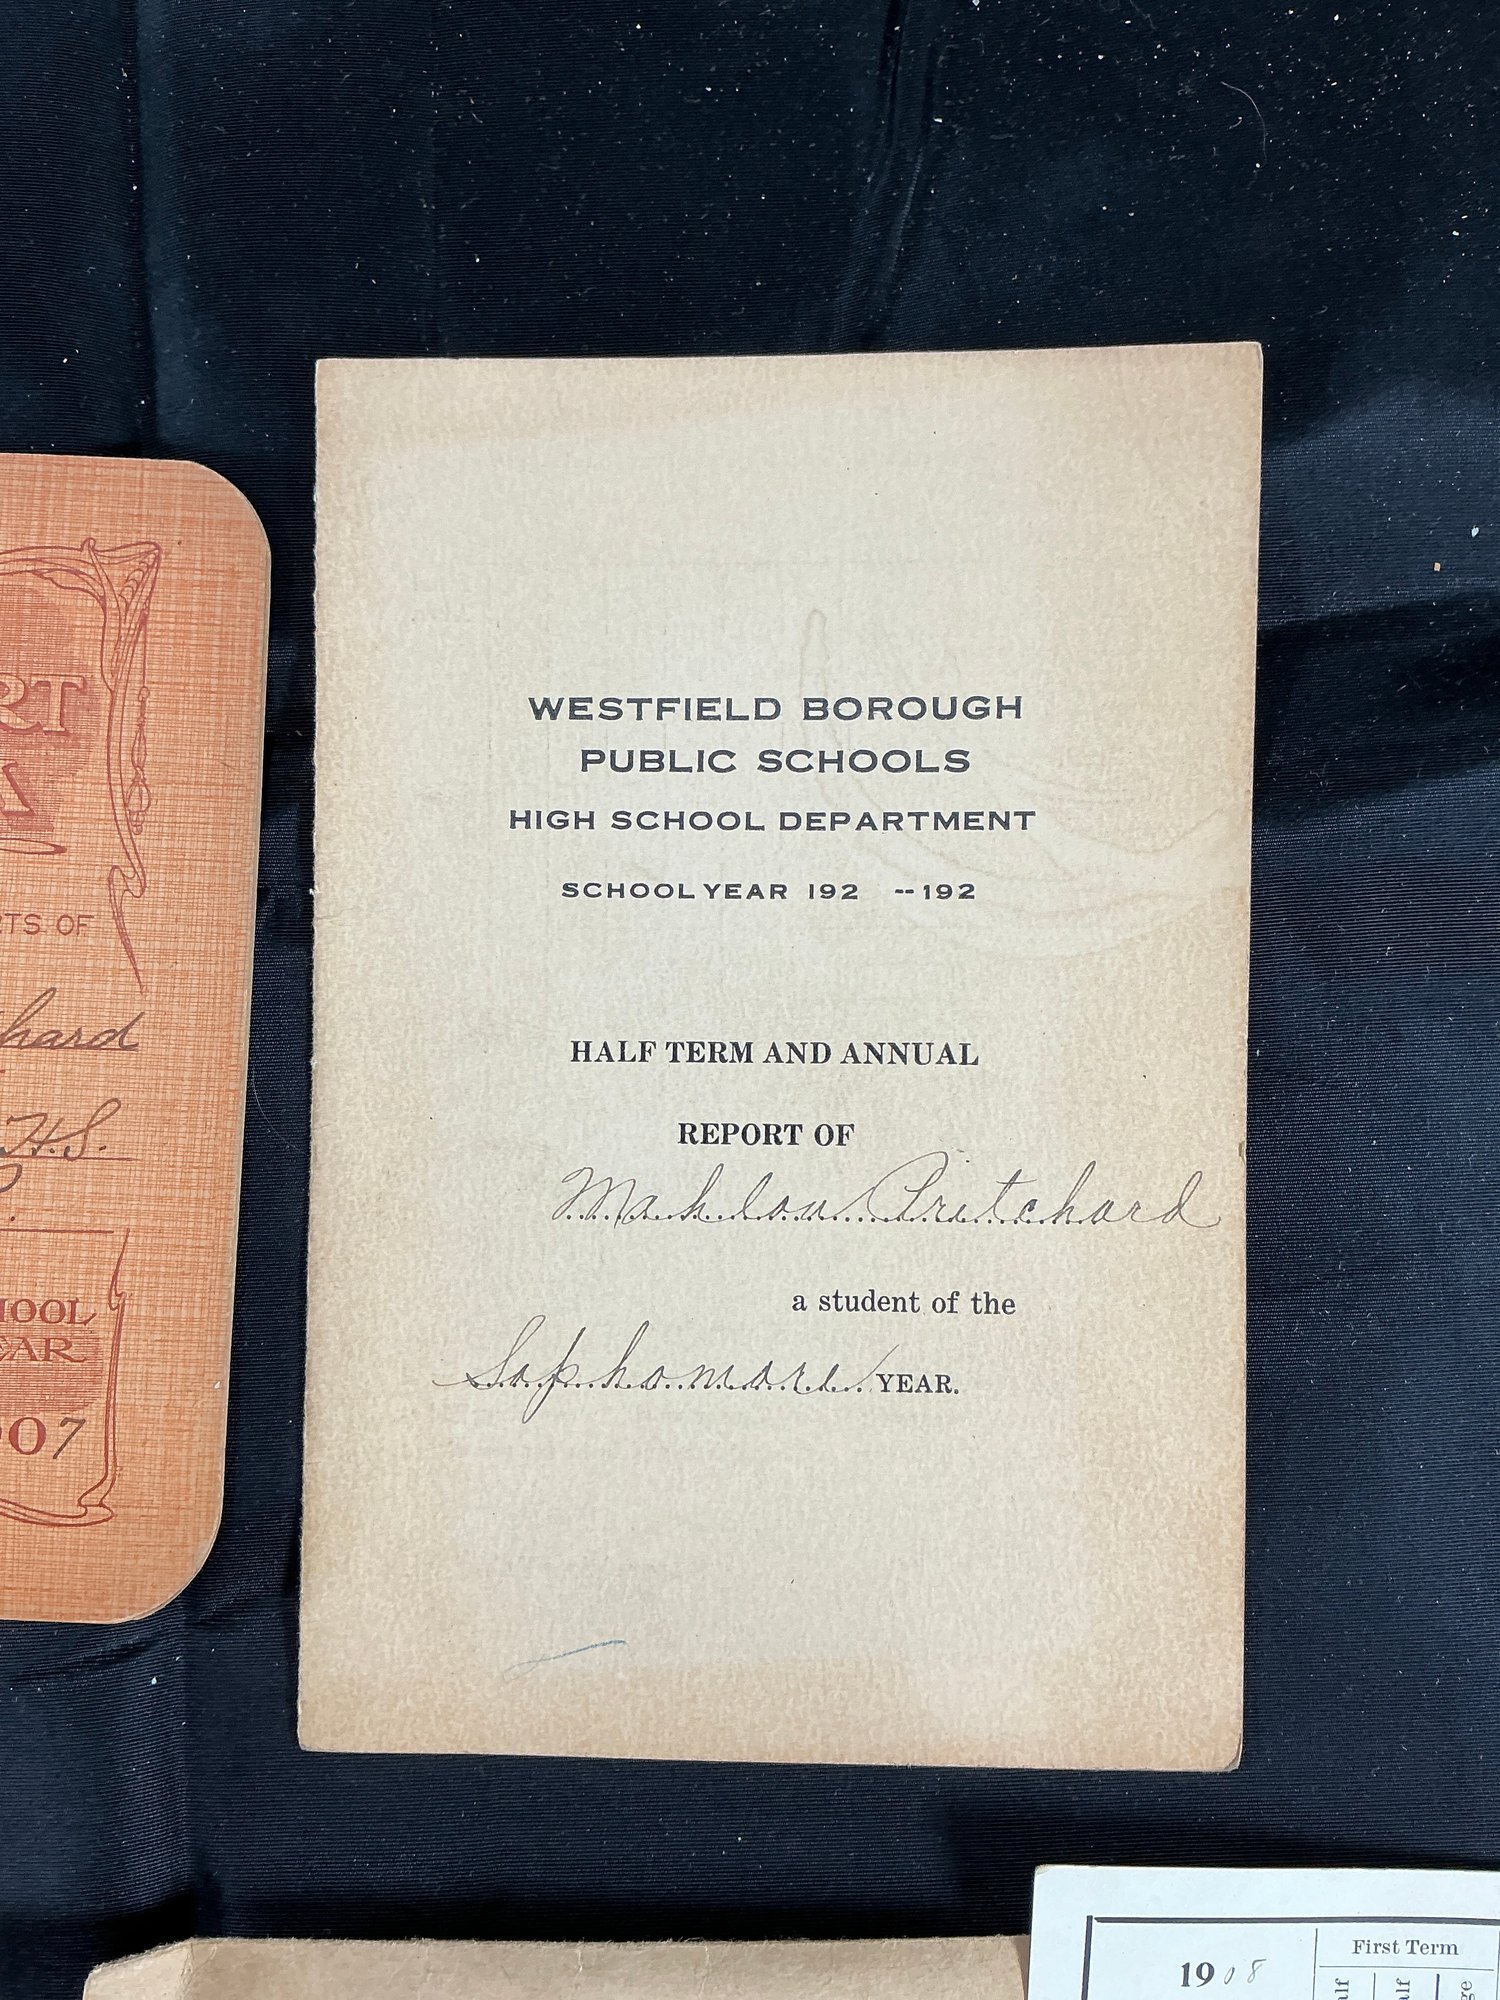 WESTFIELD BOROUGH
PUBLIC SCHOOLS
HIGH SCHOOL DEPARTMENT
SCHOOL YEAR 192 --192
HALF TERM AND ANNUAL
REPORT OF
Mahlon Pritchard
a student of the
Sophomore YEAR.
RT
RTS OF
chard
H.S.
HOOL
EAR
907
1908
First Term
alf
alf
ge